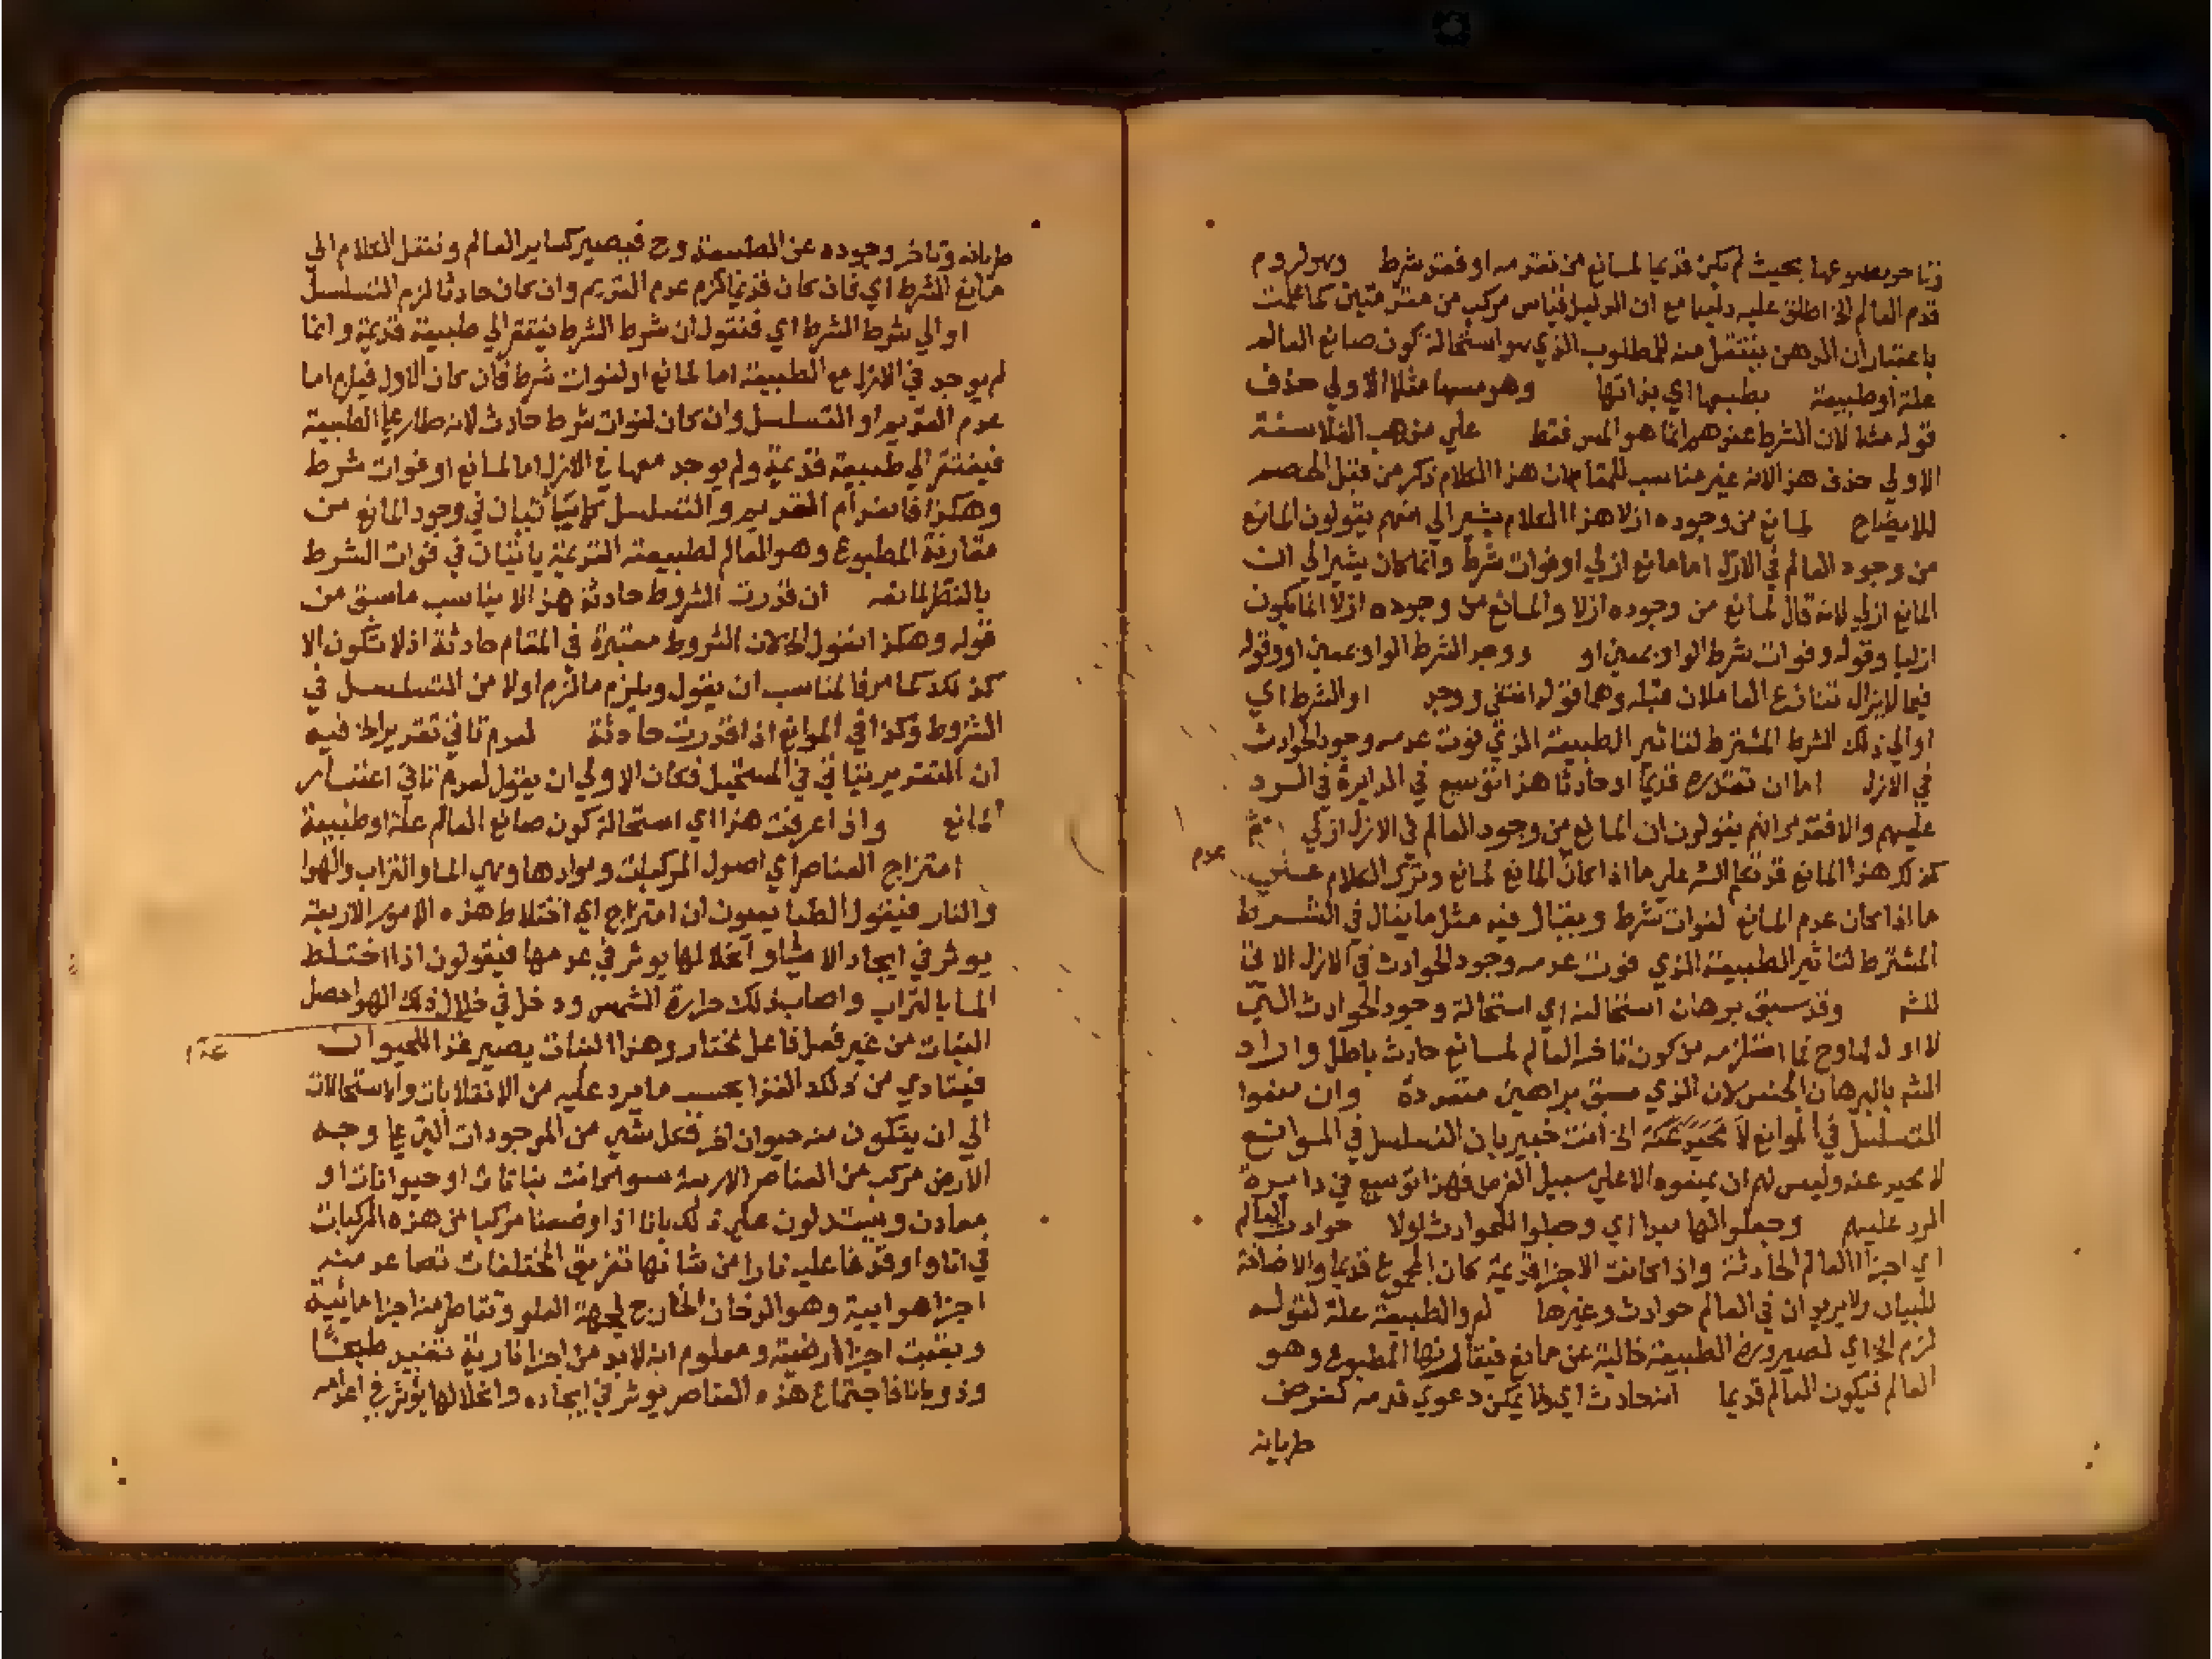 قدم العالم الخ اطلق عليه دليلا مع ان الدليل قياس مركب من مقدمتين كما علمت
باعتباران الذهن ينتقل منه للمطلوب الذي هو استحالة كون صانع العالم
علة او طبيعة بطبعها اي بذاتها وهو مسها مثلا الاولي حذف
قوله مثلا لان الشرط عندهم انما هو المس فقط علي مذهب الفلاسفة
الاولي حذف هذا لانه غير مناسب للمقام لان هذا الكلام ذكر من قبل الخصم
للايضاح لمانع من وجوده ازلا هذا الكلام يشير الي انهم يقولون المانع
من وجود العالم في الازل اما مانع ازلي او فوات شرط وانما كان يشير الي ان
المانع ازلي لانه قال لمانع من وجوده ازلا والمانع من وجوده ازلا انما يكون
ازليا وقوله وفوات شرط الواو بمعني او ووجد الشرط الواو بمعني او وقوله
فيما لايزال تنازع العاملان قبله وهما قوله انتفي ووجد او الشرط اي
او الي ذلك الشرط المشترط لتاثير الطبيعة الذي فوت عدمه وجود الحوادث
في الازل اما ان تقدره قديما او حادثا هذا توسيع في الدايرة في الرد
عليهم والا فقد مر انهم يقولون ان المانع من وجود العالم في الازل ازلي
كذلك هذا المانع قد تكلم الشم علي ما اذا كان المانع لمانع وترك الكلام علي
عدم
ما اذا كان عدم المانع لفوات شرط ويقال فيه مثل ما يقال في الشرط
المشترط لتاثير الطبيعة الذي فوت عدمه وجود الحوادث في الازل الاتي
للشم وقد سبق برهان استحالته اي استحالة وجود الحوادث التي
لا اول لها وح فما استلزمه من كون تاخر العالم لمانع حادث باطل واراد
الشم بالبرهان الجنس لان الذي سبق براهين متعددة وان منعوا
التسلسل في الموانع لا محيد عنه الخ انت خبير بان التسلسل في الموانع
لا محيد عنه وليس لهم ان يمنعوه الا علي سبيل الفرض فهذا توسيع في دايرة
الرد عليهم وجعلوا لها مبدا اي وجعلوا للحوادث اولا حوادث العالم
اي اجزا العالم الحادثة واذا كانت الاجزا قديمة كان المجموع قديما والاضافة
للبيان ولا يريد ان في العالم حوادث وغيرها لم والطبيعة علة لقوله
لزم الخ اي لصيرورة الطبيعة خالية عن مانع فيقارنها المطبوع وهو
العالم فيكون العالم قديما انه حادث اي فلا يمكن دعوي قدمه كفرض
طريانه
طريانه وتاخر وجوده عن الطبيعة وح فيصير كساير العالم وننقل الكلام الي
مانع الشرط اي فان كان قديما لزم عدم القديم وان كان حادثا لزم التسلسل
او الي شرط الشرط اي فنقول ان شرط الشرط يفتقر الي طبيعة قديمة وانما
لم يوجد في الازل مع الطبيعة اما لمانع او لفوات شرط فان كان الاول فيلزم اما
عدم القديم او التسلسل وان كان لفوات شرط حادث لانه طار علي الطبيعة
فيفتقر الي طبيعة قديمة ولم يوجد معها في الازل اما لمانع او فوات شرط
وهكذا فانعدام القديم والتسلسل كما ياتيان في وجود المانع من
مقارنة المطبوع وهو العالم لطبيعته القديمة ياتيان في فوات الشرط
بالنظر لمانعه ان قدرت الشروط حادثة هذا لا يناسب ما سبق من
قوله وهكذا انقول الخ لان الشروط معتبرة في المقام حادثة اذ لا تكون الا
كذلك كما مر فالمناسب ان يقول ويلزم ما لزم اولا من التسلسل في
الشروط وكذا في الموانع اذا قدرت حادثة لعدم تاتي تقدير الخ فيه
ان التقدير يتاتي في المستحيل فكان الاولي ان يقول لعدم تاتي اعتبار
المانع واذا عرفت هذا اي استحالة كون صانع العالم علة او طبيعة
امتزاج العناصر اي اصول المركبات وموادها وهي الما والتراب والهوا
والنار فيقول الطبايعيون ان امتزاج اي اختلاط هذه الامور الاربعة
يوثر في ايجاد الاشيا وانحلالها يوثر في عدمها فيقولون اذا اختلط
الما بالتراب واصاب ذلك حرارة الشمس ودخل في خلال ذلك الهوا حصل
النبات من غير فعل فاعل مختار وهذا النبات يصير غذا للحيوان
فيتادي من ذلك الغذا بحسب ما يرد عليه من الانقلابات والاستحالات
الي ان يتكون منه حيوان اخر فكل شي من الموجودات التي علي وجه
الارض مركب من العناصر الاربعة سوا كانت نباتات او حيوانات او
معادن ويستدلون علي ذلك بانا اذا وضعنا مركبا من هذه المركبات
في انا واوقدنا عليه نارا من شانها تفريق المختلفات تصاعد منه
اجزا هوايية وهو الدخان الخارج لجهة العلو وتقاطر منه اجزا مائية
وبقيت اجزا ارضية ومعلوم انه لابد من اجزا نارية تفيد طبخا
وذوبانا فاجتماع هذه العناصر يوثر في ايجاده وانحلالها يؤثر في اعدامه